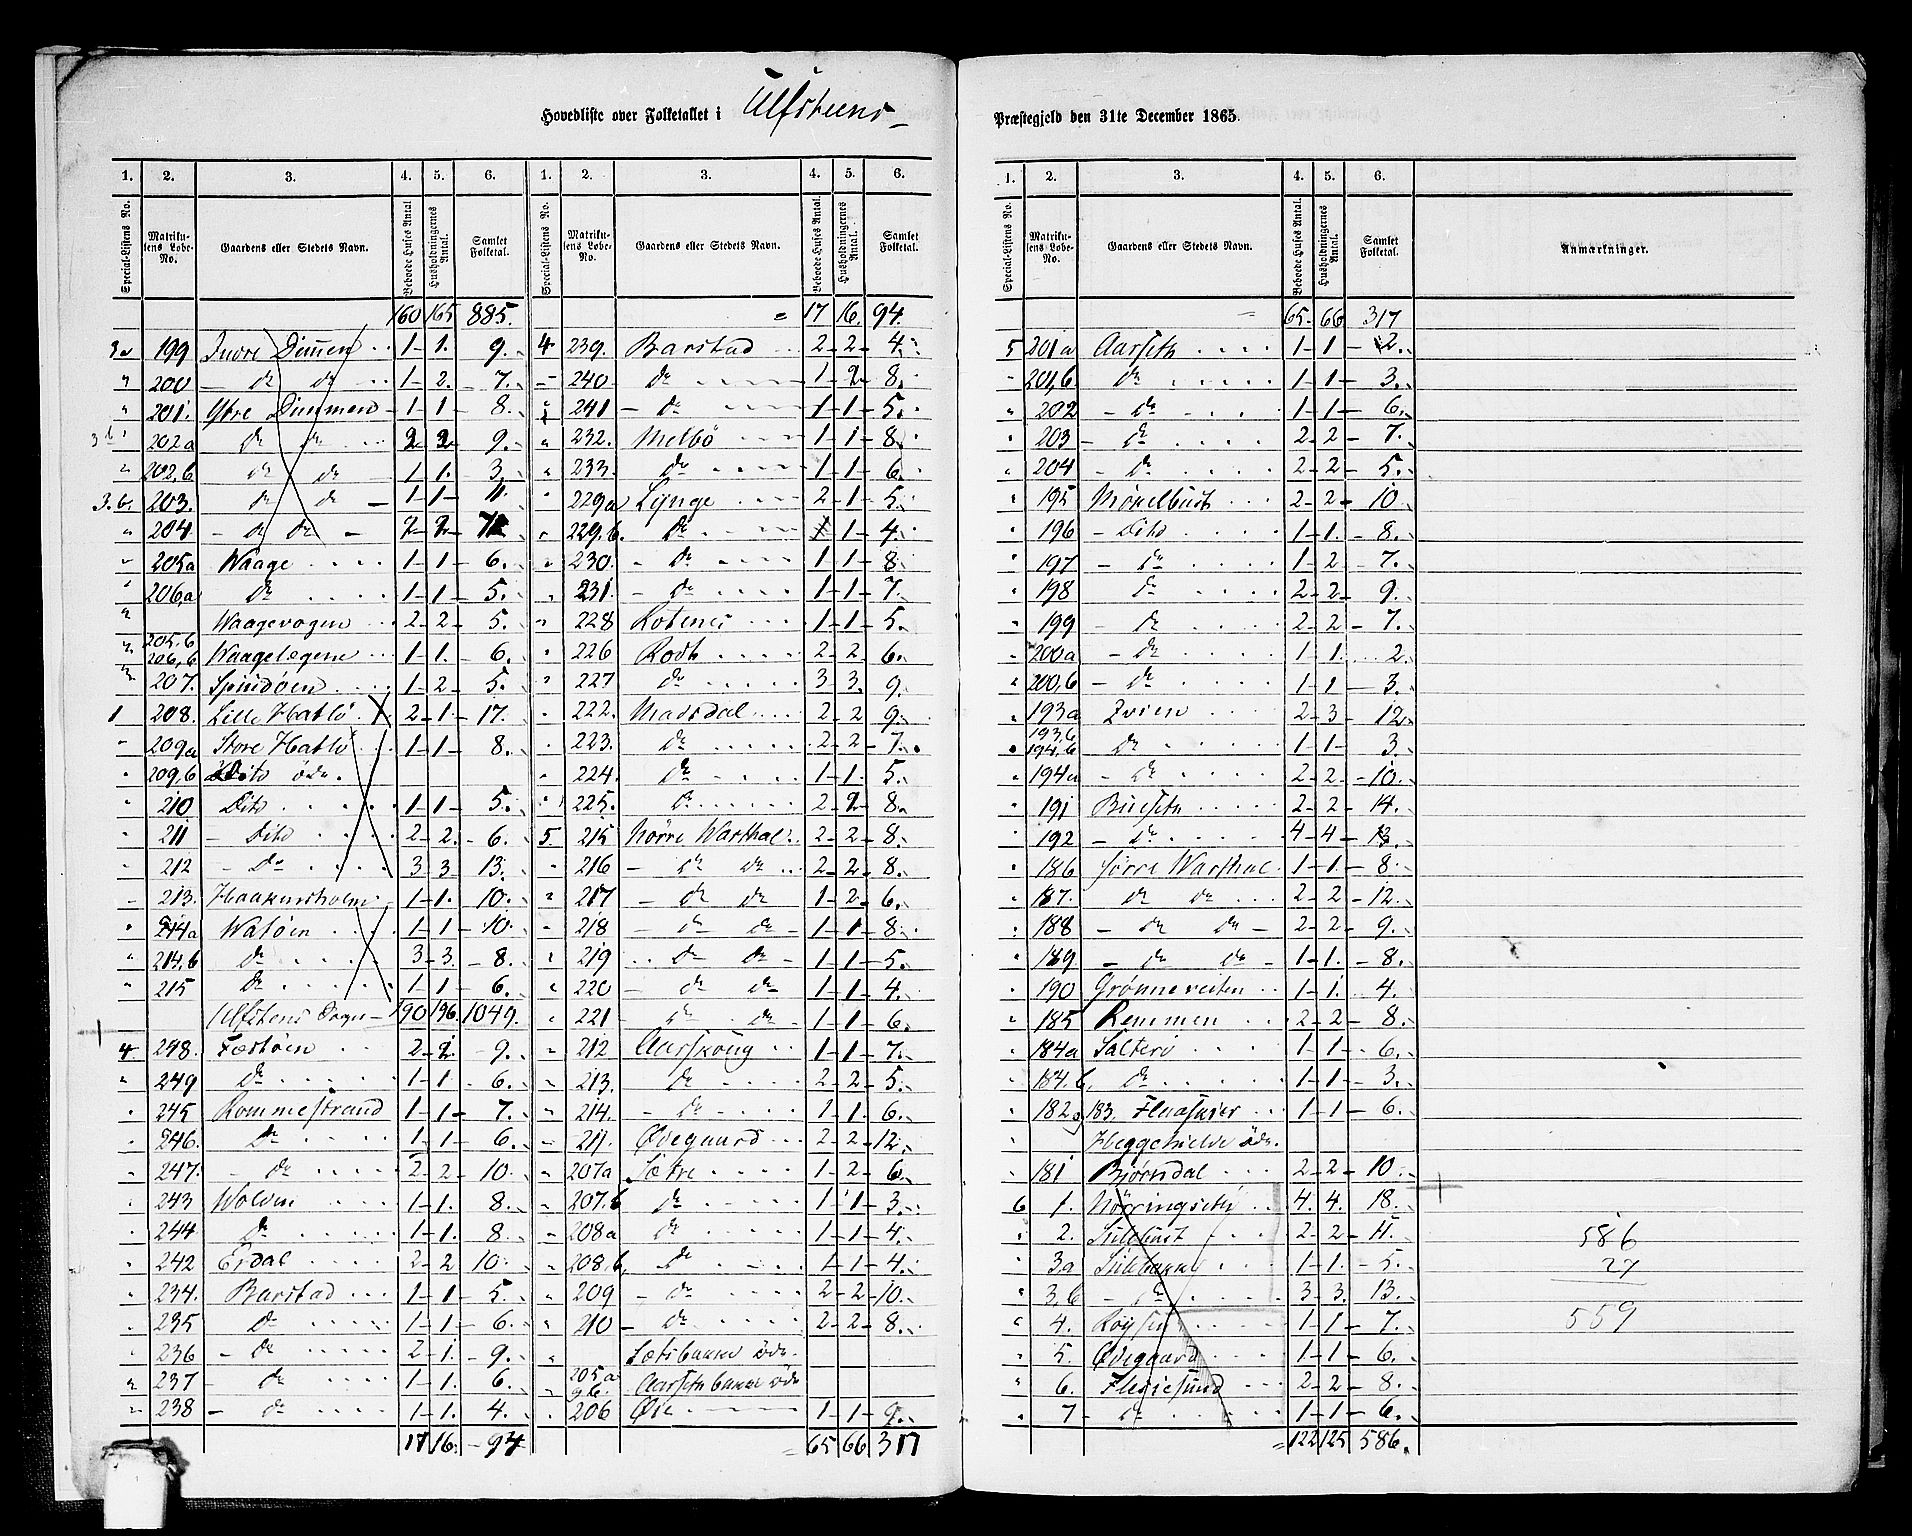 Hovedliste over Folketallet i Ulfsteens- Præstegjeld den 31te December 1865.
1. 2. 3. 4. 5. 6. 1. 2. 3. 4. 5. 6.
Special-Listens No. Matrikulens Løbe-No. Gaardens eller Stedets Navn. Beboede Huses Antal Husholdningernes Antal. Samlet Folketal. Special-Listens No. Matrikulens Løbe-No. Gaardens eller Stedets Navn. Beboede Huses Antal. Husholdningernes Antal. Samlet Folketal.
160 165 885.
3a 199 Indre Dimen 1 1. 9.
" 200 — do do 1 2. 7.
" 201. Ytre Dimmen 1 1 8.
3b 202a do do 2 2 9.
" 202,b do do 1 1. 3.
3.b. 203. do do 1 1 11.
" 204 — do do 2 2
" 205a Waage 1 1 6.
" 206,a do 1 1 5.
" Waagevogen 2 2 5.
" 205.b 206,b Waagelægene 1 1. 6.
" 207. Spindøen 1 2 5.
1 208. Lille Hatlö 2 1. 17.
" 209a Store Hatlö 1 1 8.
" 209,b Dito öde.
" 210 Dito 1 1 5.
" 211 Dito 2 2. 6.
" 212 — Do 3 3 13.
" 213. Haakonsholm 1 1. 10.
" 214a Watöen 1 1 10.
" 214.b do 3 3. 8.
" 215 do 1 1 6.
Ulfstens Sogn 190 196. 1049.
4 248. Festöen 2 2. 9.
" 249 do 1 1 6.
" 245 Rommestrand 1 1 7.
" 246. do 1 1 6.
" 247. — do 2 2 10.
" 243 Wolden 1 1. 8.
" 244 do 1 1. 8.
" 242 Eidal 2 2 10.
" 234. Barstad 1 1 5.
" 235 do 1 1 6.
" 236 — do 2 1. 9.
" 237 — do 1 1. 6.
" 238 — do 1 1. 4.
17 16. 94
= 17 16. 94.
4 239. Barstad 2 2 4.
" 240 do 1 2 8.
" 241 — do 1 1 5.
" 232. Melbö 1 1 8.
" 233. do 1 1 6.
" 229a Lynge 2 1 5.
" 229,b. do 1 4.
" 230. — do 1 1 8
" 231. — do 1 1 7.
" 228 Rotenes 1 1 5.
" 226 Rodt 2 2 6.
" 227 do 3 3. 9.
" 222. Madsdal 2 2 9.
" 223. do 2 2 7.
224. do 1 1. 5.
" 225. do 2 2 8.
5. 215 Nörre Warthal 2 2 8.
" 216 — do do 2 2 8.
" 217 — do do 1 2 6.
" 218 — do do 1 1 8.
" 219 do do 1 1 5.
" 220 — do do 1 1 4.
" 221 — do do 1 1 6.
" 212 Aarskoug 1 1 7.
" 213. do 2 2 5.
" 214. — do 1 1. 6.
" 211. Ødegaard 2 2 12.
" 207a Sætre 1 2 6.
" 207.b do 1 1 3.
" 208a do 1 1 4.
" 208,b. do 1 1 4.
" 209 — do 2 2 10.
" 210 — do 2 2 8.
" Sætsbakke öde.
" 205a & b. Aarsethbakke öde
" 206 Øie 1 1 9.
= 65 66 317
1. 2. 3. 4. 5. 6.
Special-Listens No. Matrikulens Løbe-No. Gaardens eller Stedets Navn. Beboede Huses Antal. Husholdningernes Antal. Samlet Folketal. Anmærkninger.
65. 66 317
5 201a Aarseth 1 1 2.
" 201,b do 1 1 3.
" 202 — do 1 1 6.
" 203 — do 2 2 7.
" 204 — do 2 2 5.
" 195 Mörkelbust 2 2 10
" 196 — Dito 1 1. 8.
" 197 — do 1 2 7.
" 198 do 2 2 9.
" 199 — do 2 2 7.
" 200a — do 1 1. 2.
" 200,b — do 1 1 3.
" 193a 2 3 12
" 193,b 194,b — do 1 1 3.
" 194a — do 2 2. 10.
" 191 Biiseth 2 2 14.
" 192 — do 4 4 13.
" 186 Sörre Warthal 1 1 8.
" 187. do do 2 2 12.
" 188 — do do 2 2 9.
" 189 — do do 1 1. 8.
" 190 Grönneveiten 1 1. 4.
" 185 Remmen 2 2 8.
" 184a Salteri 1 1 6.
" 184.b. do 1 1 3.
" 182 183. Flaaskjer 1 1 6.
Heggekielde öde.
" 181 Bjørndal 2 2 10.
6 1. Nörringseth 4. 4. 18.
" 2. Sulebust 2 2 11.
" 3a Sulebakke 1 1. 5.
" 3,b — do 3 3. 13.
" 4. Röyseth 1 1 7.
" 5. Ødegaard 1 1 6.
" 6. Flesiesund 2 2 8.
" 7 — do 1 1 6.
= 122 125 586.
586
27
559